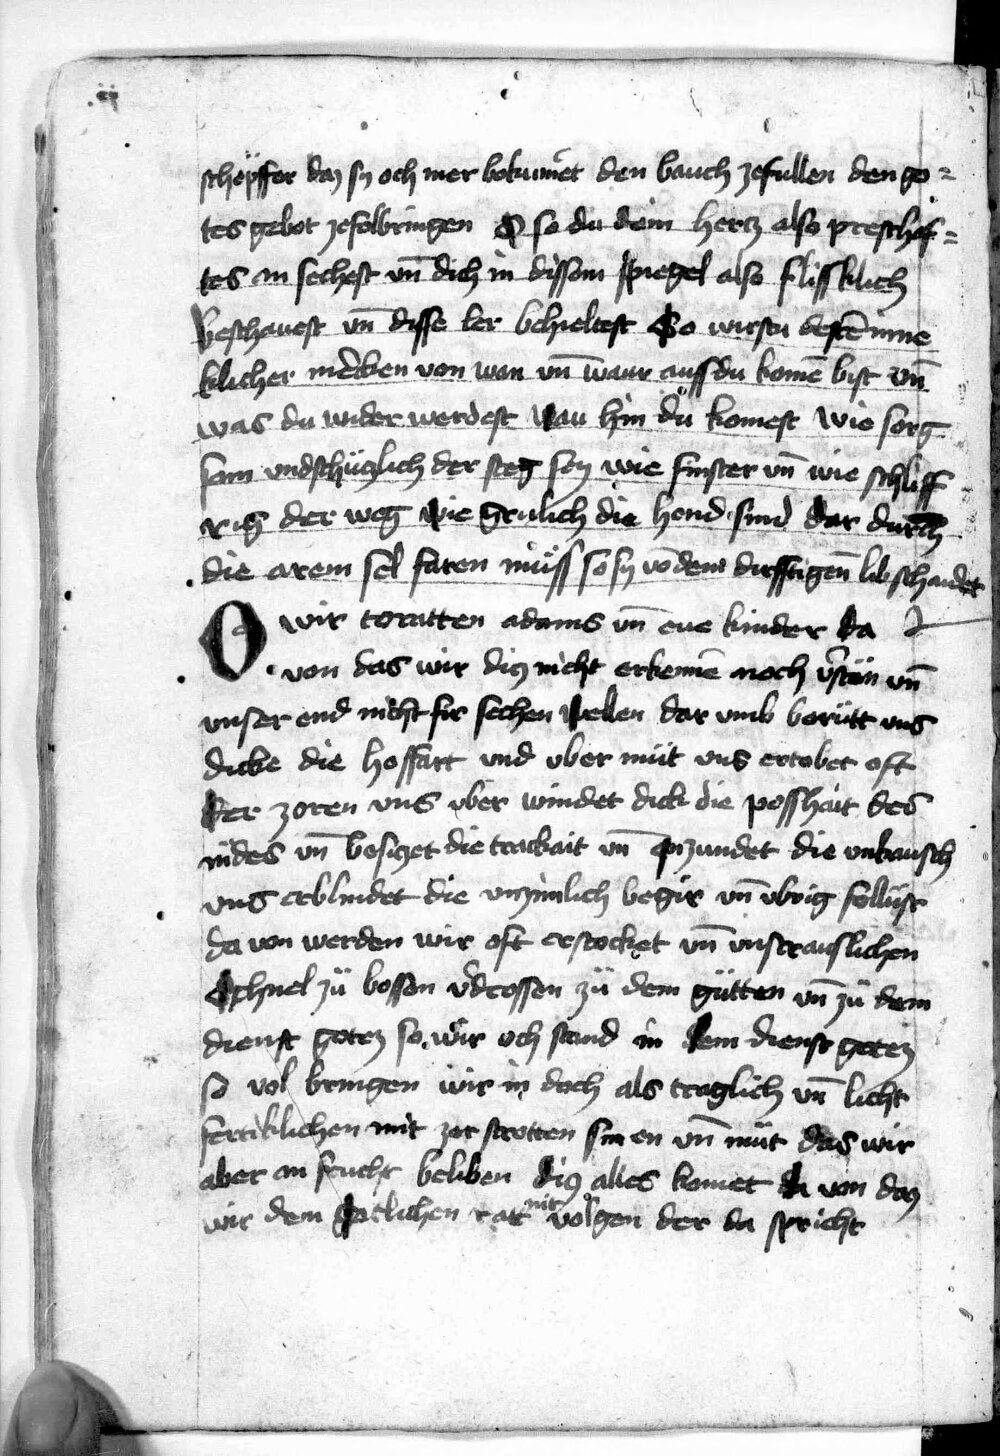 schöpffer daz sy och mer bekumͤet den bauch zefullen den go=
tes gebot zefolbringen O so du dein hertz also preschaf=
tes an sechest vn̄ dich in dissem spiegel also flissklich
beschauest vn̄ disse ler behieltest So wirstu dester̄ inne
klicher mercken von wan vn̄ waur auss du komē bist vn̄
was du wider werdest wau hin dů komest wie sorg
sam vnd schüczlich der steg sey wie finster vn̄ wie schliff
rig der weg wie grulich die hend sind dar durch
die arem sel faren müss so sy vō dem dirfftigen̄ lib schaidet
O wir toratten adams vn̄ eue kinder da
von das wir diz nicht erkenen̄ noch v̓stön vn̄
vnser end nicht fir sechen wellen dar vmb berütt vns
dicke die hoffart vnd vber müt vns ertobet oft
der zoren vns vber windet dick die posshait des
nides vn̄ besiget die trackait vn̄ enzundet die vnkausch
vns erblindet die vnzimlich begir vn̄ vbrig sellüst
da von werden wir oft erstocket vn̄ vnstrauslichen
schnel zü bossen v̓drossen zü dem gütten vn̄ zü dem
dienst gotez so wir och stand in dem dienst gotez
so vol bringen wir in doch als traglich vn̄ licht
fertiklichen mit zer strotten sinen vn̄ müt das wir
aber an frucht beliben diz alles komet da von daz
wir dem gotlichen rat nit volgen der da spricht